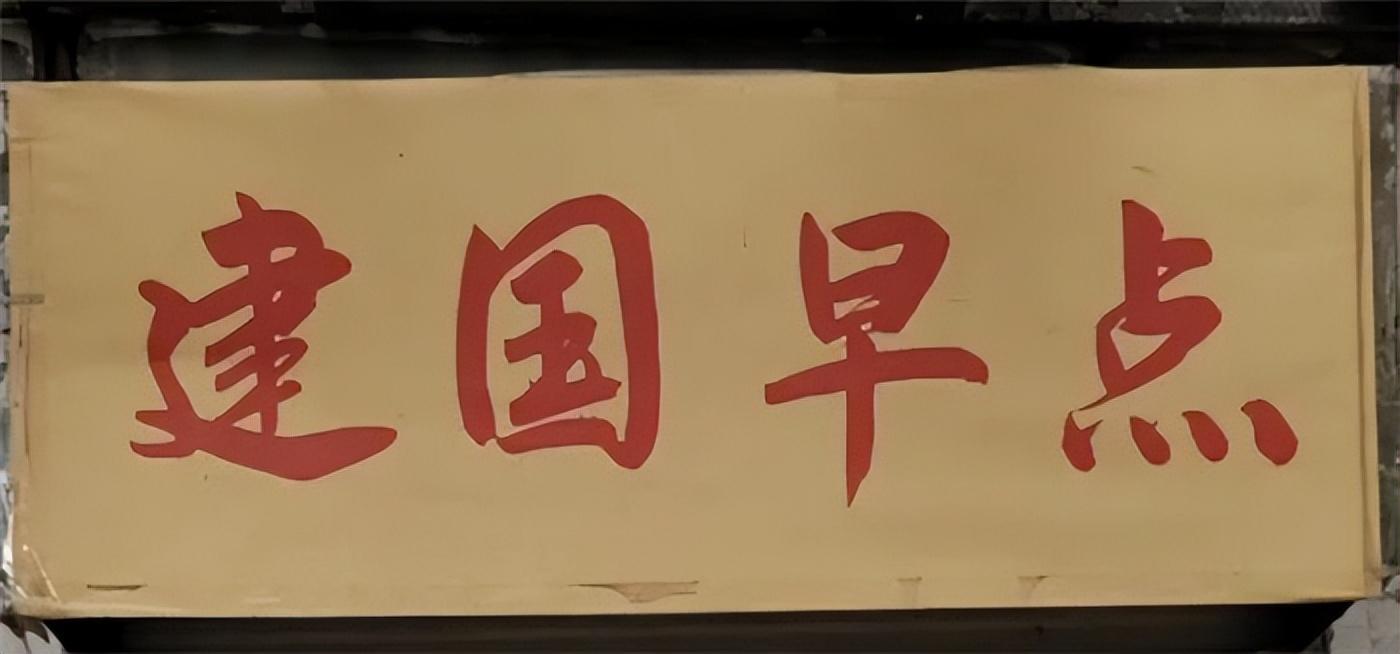 建国早点